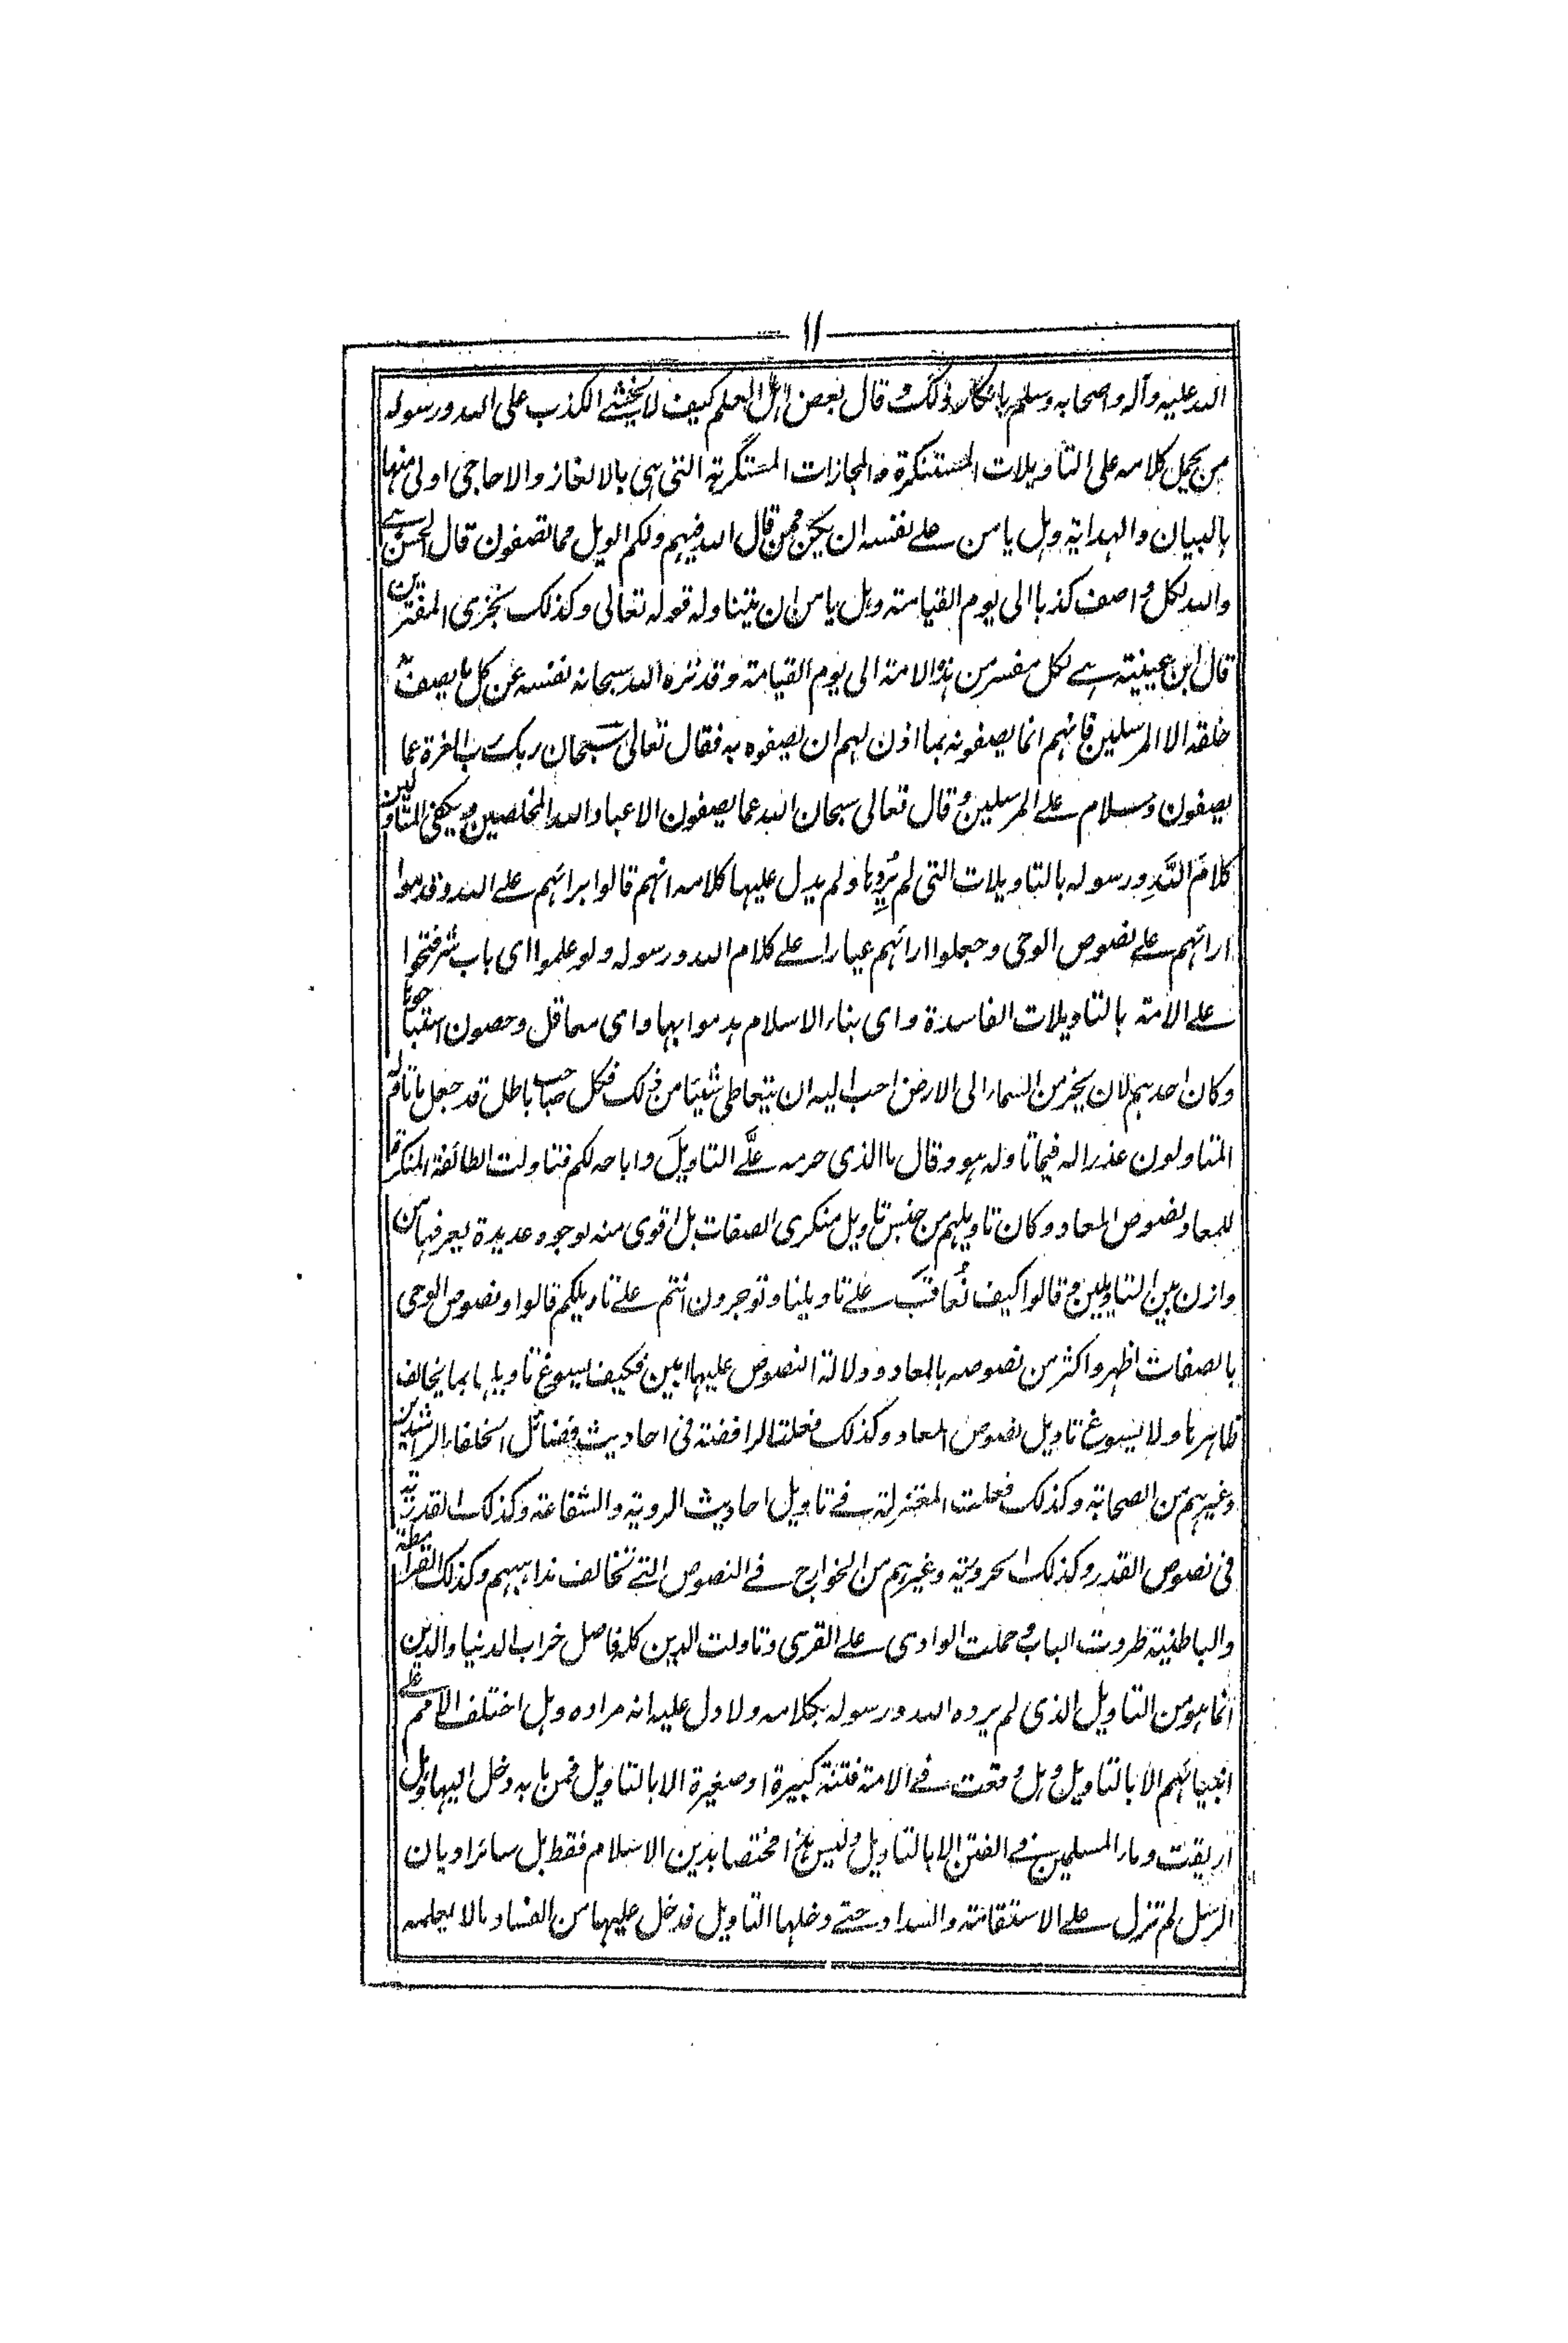 ١١
الله عليه وآله واصحابه وسلم بانكار ذلك وقال بعض اهل العلم كيف لا يخشے الكذب على الله ورسوله
من يحمل كلامه على التاويلات المستنكرة والمجازات المستكرهة التى هى بالالغاز والاحاجى اولى منها
بالبيان والهداية وهل يامن علے نفسه ان يكون ممن قال الله فيهم ولكم الويل مما تصفون قال الحسن هے
والله لكل واصف كذبا الى يوم القيامة وهل يامن ان يتناوله قوله تعالى وكذلك نجزى المفترين
قال ابن عيينة هے لكل مفتر من هذه الامة الى يوم القيامة وقد نزه الله سبحانه نفسه عن كل ما يصفه
خلقه الا المرسلين فانهم انما يصفونه بما اذن لهم ان يصفوه به فقال تعالى سبحان ربك رب العزة عما
يصفون وسلام علے المرسلين وقال تعالى سبحان الله عما يصفون الا عباد الله المخلصين ويكفى المتاولين
كلامَ اللهِ ورسوله بالتاويلات التى لم يُرِدها ولم يدل عليها كلامه انهم قالوا برائهم علے الله وقدموا
ارائهم علے نصوص الوحى وجعلوا ارائهم عيارا علے كلام الله ورسوله ولو علموا اى باب شر فتحوا
علے الامة بالتاويلات الفاسدة واى بناء الاسلام هدموا بها واى معاقل وحصون استباحوها
وكان احدهم لان يخر من السماء الى الارض احب اليه ان يتعاطى شيئا من ذلك فكل صاحب باطل قد جعل ما تاوله
المتاولون عذرا له فيما تاوله هو وقال ما الذى حرمه علَّے التاويلَ واباحه لكم فتاولت الطائفة المنكرة
للمعاد نصوص المعاد وكان تاويلهم من جنس تاويل منكرى الصفات بل اقوى منه لوجوه عديدة يعرفها من
وازن بين التاويلين وقالوا كيف نُعاقَب علے تاويلنا وتوجرون انتم علے تاويلكم قالوا ونصوص الوحى
بالصفات اظهر واكثر من نصوصه بالمعاد ودلالة النصوص عليها ابين فكيف يسوغ تاويلها بما يخالف
ظاهرها ولا يسوغ تاويل نصوص المعاد وكذلك فعلت الرافضة فى احاديث فضائل الخلفاء الراشدين
وغيرهم من الصحابة وكذلك فعلت المعتزلة فے تاويل احاديث الروية والشفاعة وكذلك القدرية
فى نصوص القدر وكذلك الحرورية وغيرهم من الخوارج فے النصوص التے تخالف مذاهبهم وكذلك القرامطة
والباطنية طردت الباب وحملت الوادى علے القرى وتاولت الدين كله فاصل خراب الدنيا والدين
انما هو من التاويل الذى لم يرده الله ورسوله بكلامه ولا دل عليه انه مراده وهل اختلف الامم علے
انبيائهم الا بالتاويل وهل وقعت فے الامة فتنة كبيرة او صغيرة الا بالتاويل فمن بابه دخل اليها وهل
اريقت دماء المسلمين فے الفتن الا بالتاويل وليس هذا مختصا بدين الاسلام فقط بل سائر اديان
الرسل لم تزل علے الاستقامة والسداد حتے دخلها التاويل فدخل عليها من الفساد ما لا يعلمه